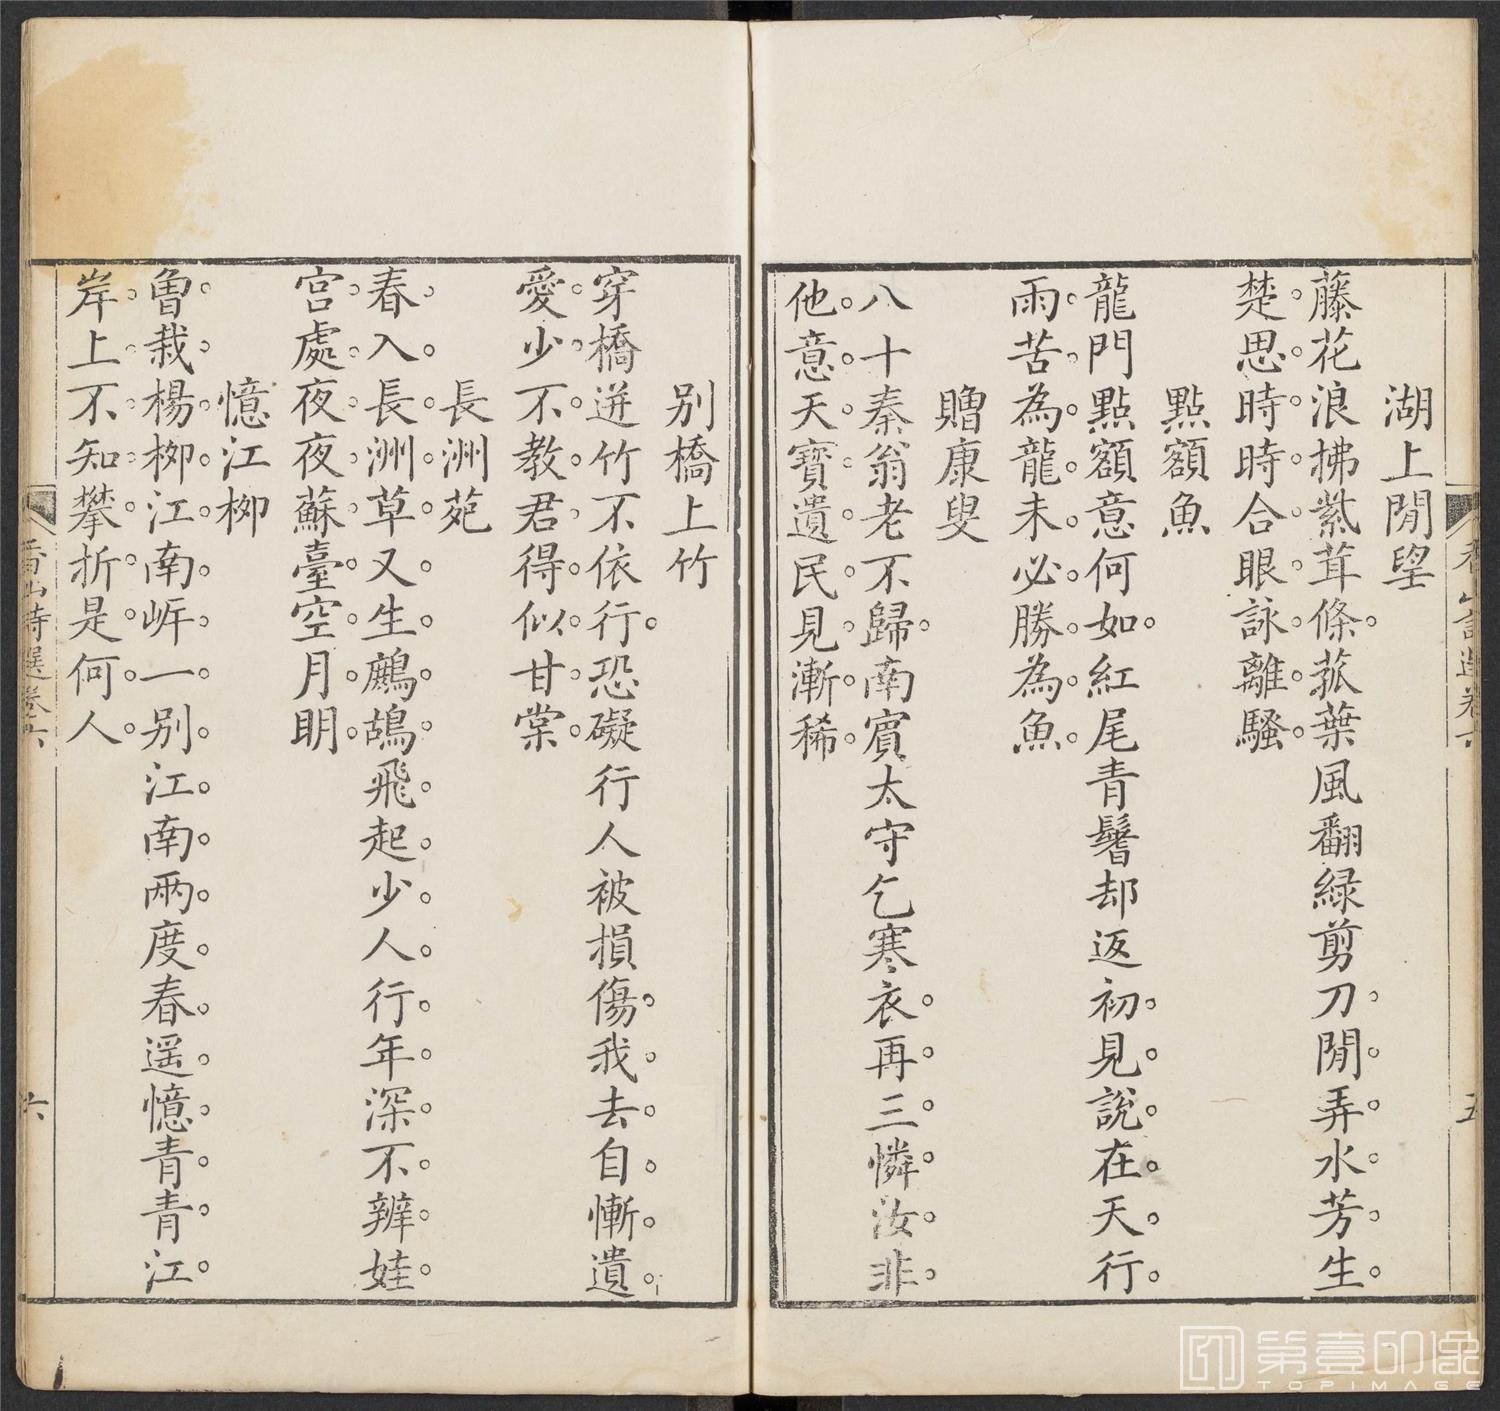 湖上閒望
藤花浪拂紫茸條菰葉風翻綠剪刀閒弄水芳生
楚思時時合眼詠離騷
點額魚
龍門點額意何如紅尾青鬐却返初見說在天行
雨苦為龍未必勝為魚
贈康叟
八十秦翁老不歸南賓太守乞寒衣再三憐汝非
他意天寶遺民見漸稀
别橋上竹
穿橋迸竹不依行恐礙行人被損傷我去自慚遺
愛少不教君得似甘棠
長洲苑
春入長洲草又生鷓鴣飛起少人行年深不辨娃
宮處夜夜蘇臺空月明
憶江栁
曽栽楊栁江南岍一别江南兩度春遥憶青青江
岸上不知攀折是何人
香山詩選卷六
六
第壹印像
TOPIMAGE